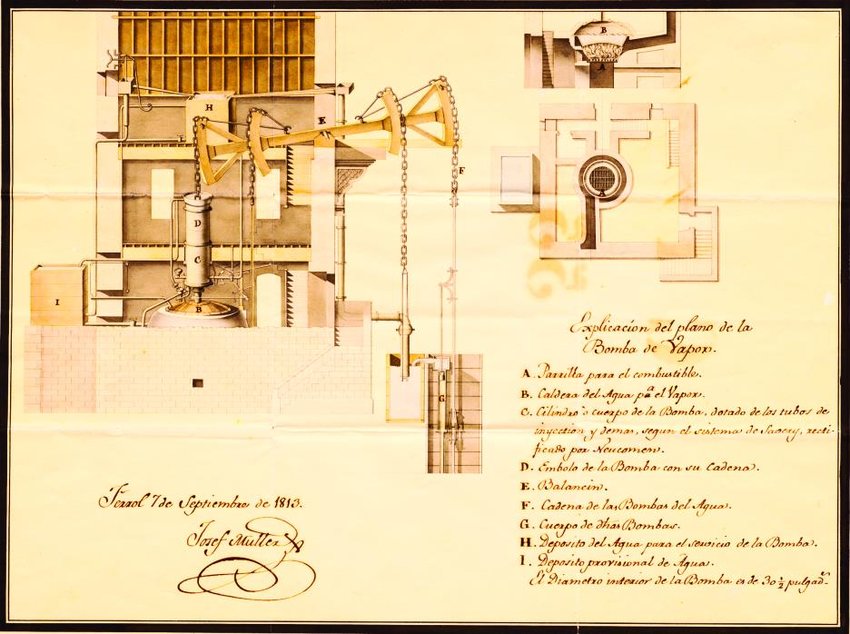 H
E
F
D
C
B
I
G
B
A
Explicacion del plano de la
Bomba de Vapor.
A. Parrilla para el combustible.
B. Caldera del Agua pa. el Vapor.
C. Cilindro ò cuerpo de la Bomba, dotado de los tubos de
inyeccion y demas, segun el sistema de Savery, recti-
ficado por Neucomen.
D. Embolo de la Bomba con su Cadena.
E. Balancin.
F. Cadena de las Bombas del Agua.
G. Cuerpo de dhas Bombas.
H. Deposito del Agua para el servicio de la Bomba.
I. Deposito provisional de Agua.
El Diametro interior de la Bomba es de 30 ½ pulgads.
Ferrol 7 de Septiembre de 1813.
Josef Muller